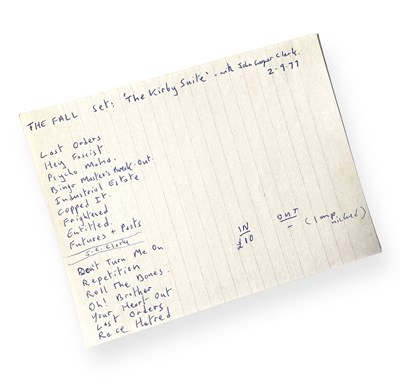 THE FALL set: 'The Kirby Suite' - with John Cooper Clark.
2-9-77
Last Orders
Hey Fascist
Psycho Mafia.
Bingo Masters Break-Out.
Industrial Estate
Copped It.
Frightened
Entitled.
Futures + Pasts
J.C. Clarke
Don't Turn Me On
Repetition
Roll The Bones.
Oh! Brother
Your Heart Out
Last Orders
Race Hatred
IN OUT
£10 - (1 amp nicked)